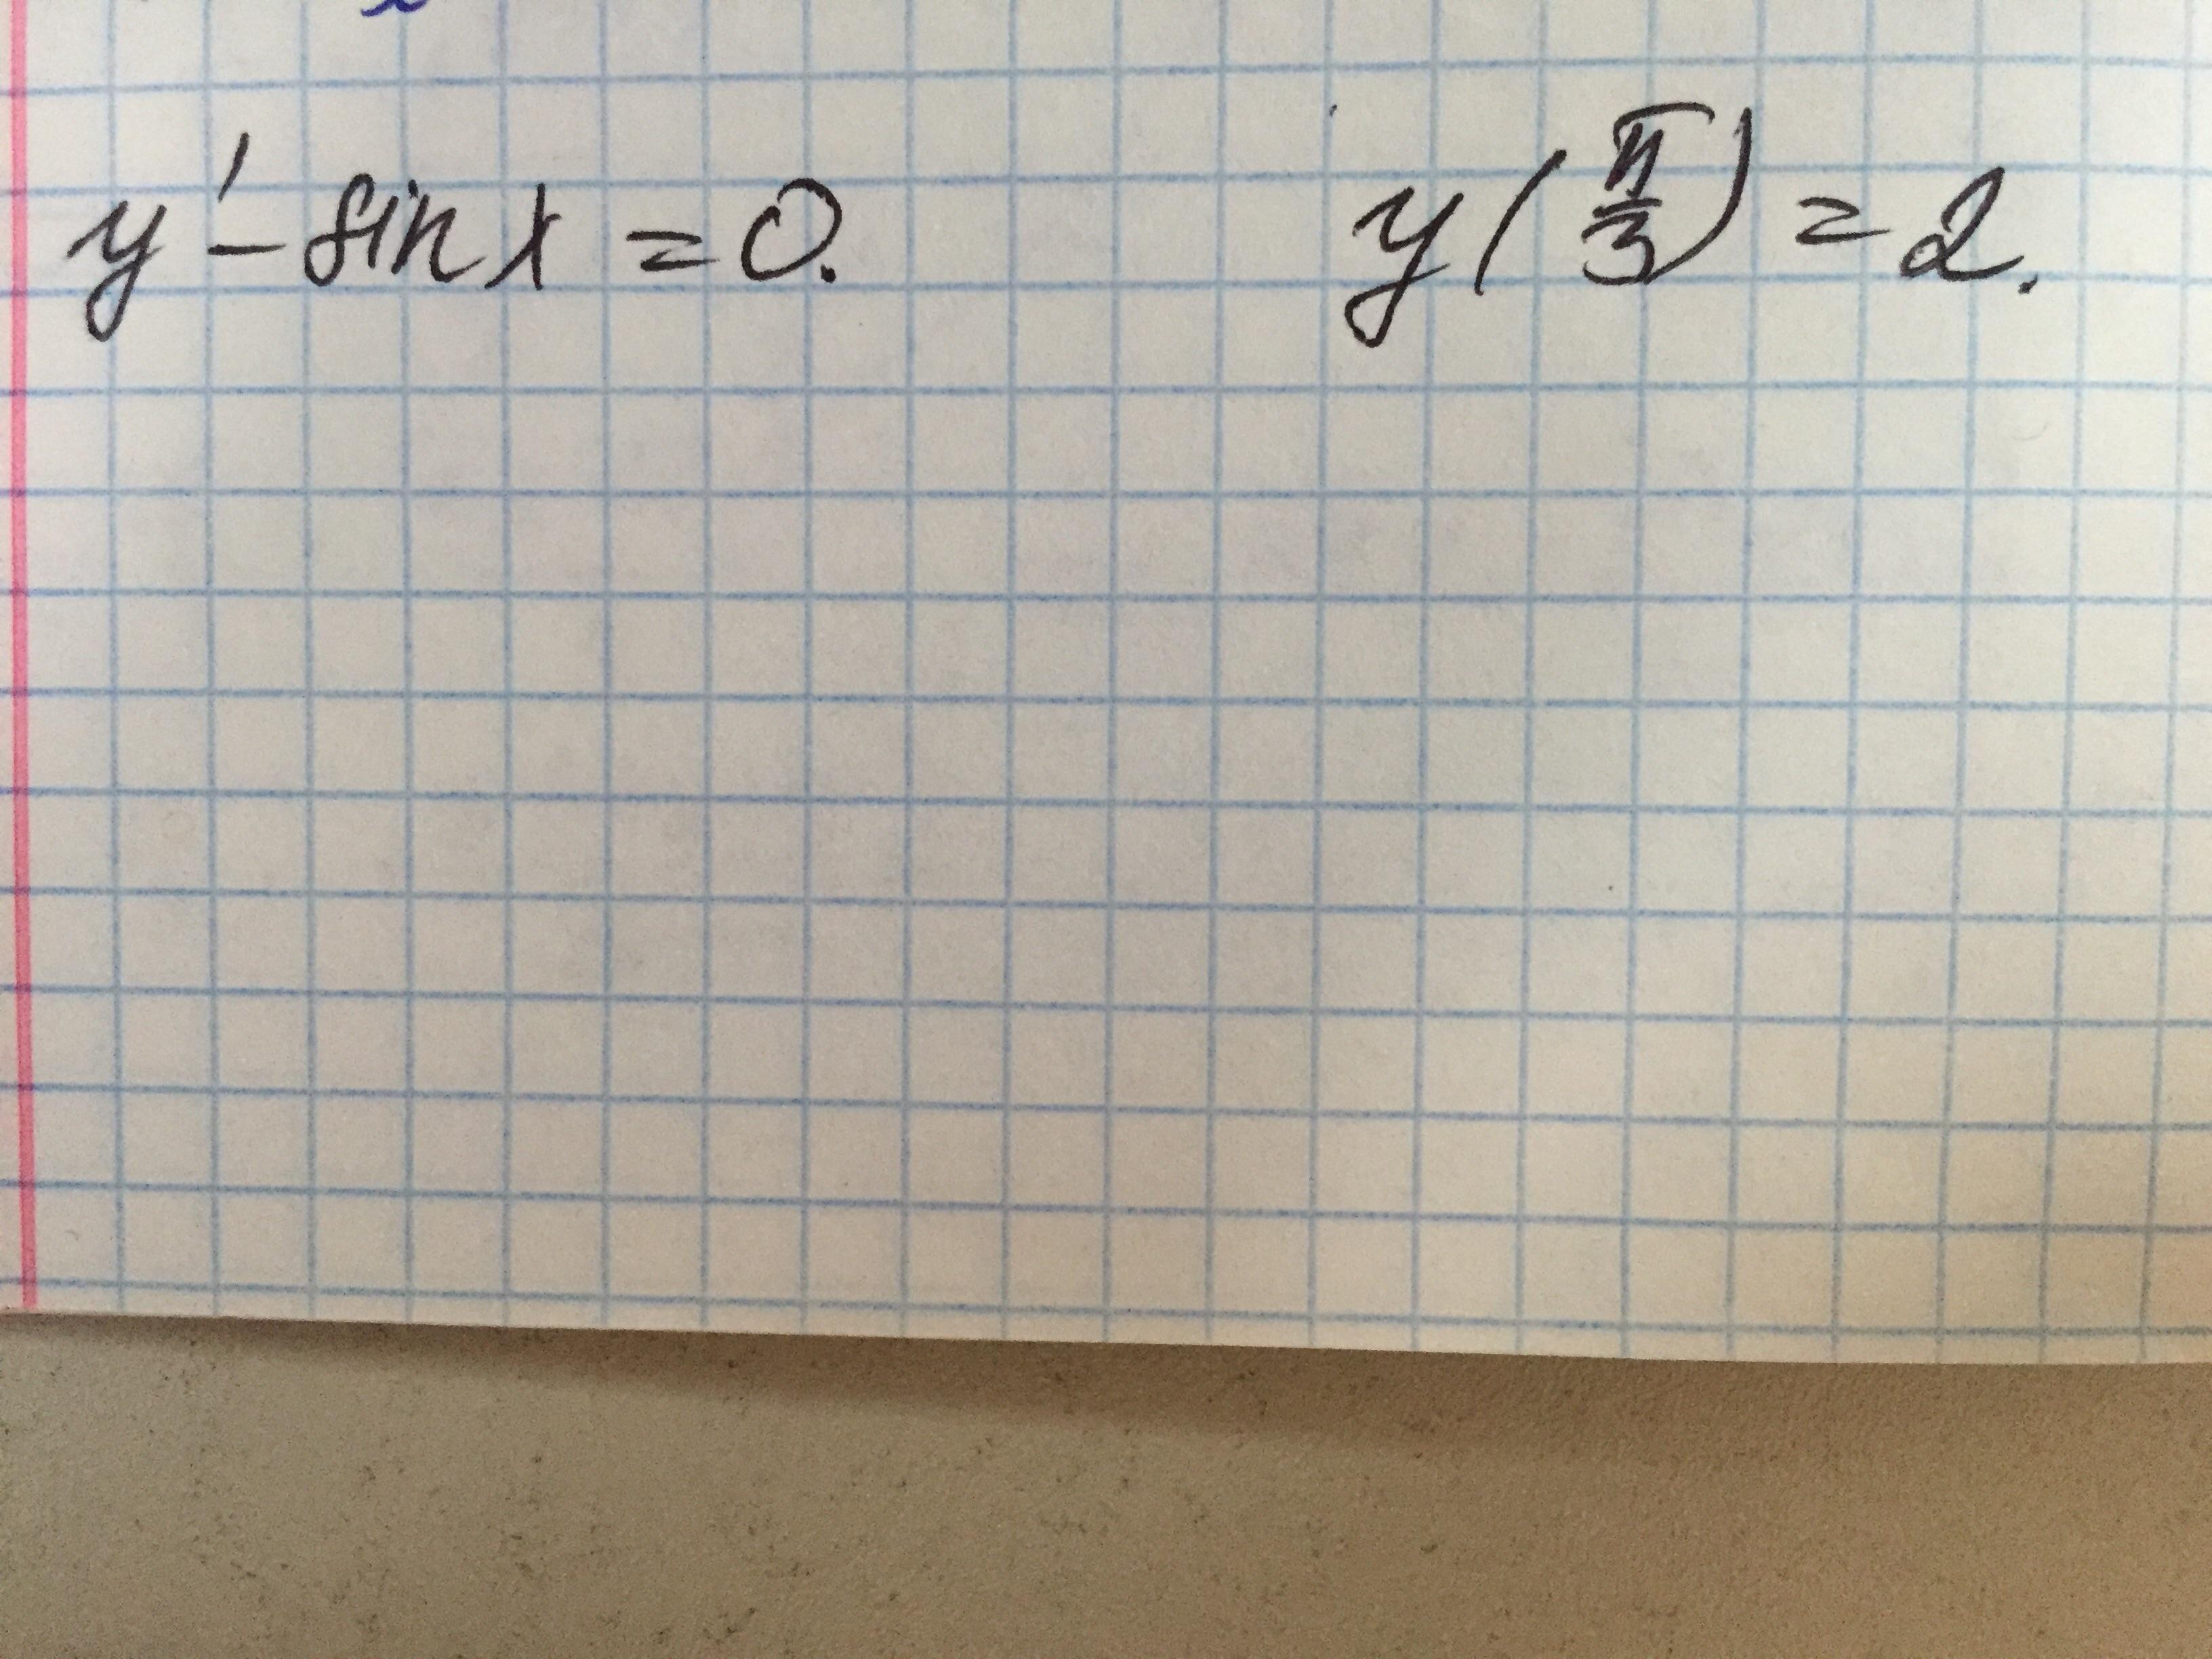 y' - sin x = 0. y(π/3) = 2.